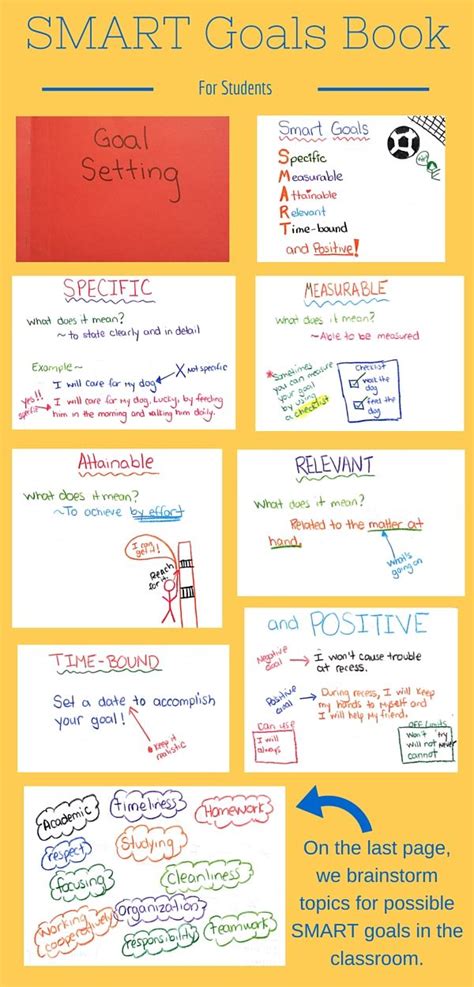 SMART Goals Book
For Students
Goal
Setting
Smart Goals
Specific
Measurable
Attainable
Relevant
Time-bound
and Positive!
SPECIFIC
What does it mean?
~ to state clearly and in detail
Example~
X Not specific
I will care for my dog
yes!!
specific
I will care for my dog, Lucky, by feeding
him in the morning and walking him daily.
MEASURABLE
What does it mean?
~Able to be measured
*Sometimes
you can measure
your goal
by using
a checklist
Checklist
walk the
dog
feed the
dog
Attainable
What does it mean?
~To achieve by effort
I can
get it!
Reach
for it!
RELEVANT
What does it mean?
Related to the matter at
hand.
what's
going on
TIME-BOUND
Set a date to accomplish
your goal!
* Keep it
realistic
and POSITIVE
Negative
goal
I won't cause trouble
at recess.
Positive
goal
During recess, I will keep
my hands to myself and
I will help my friend.
Can use
I will
always
OFF Limits
Won't try
will not never
cannot
Academic
timeliness
Homework
respect
Studying
focusing
Cleanliness
working
cooperatively
Organization
responsibility
teamwork
On the last page,
we brainstorm
topics for possible
SMART goals in the
classroom.